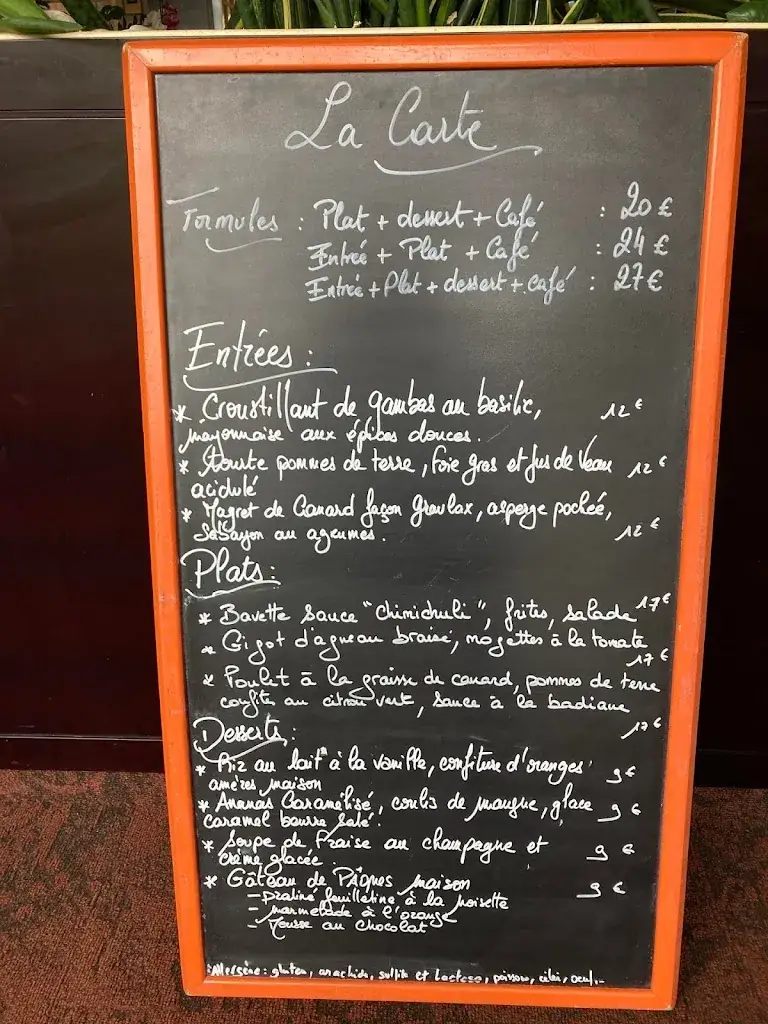 La Carte
Formules : Plat + dessert + Café : 20 €
Entrée + Plat + Café : 24 €
Entrée + Plat + dessert + café : 27 €
Entrées :
* Croustillant de gambas au basilic, 12 €
mayonnaise aux épices douces.
* Tourte pommes de terre, foie gras et jus de Veau 12 €
acidulé
* Magret de Canard façon Gravlax, asperge pochée,
Sabayon au agrumes. 12 €
Plats :
* Bavette sauce "Chimichuli", frites, salade 17 €
* Gigot d'agneau braisé, mogettes à la tomate
17 €
* Poulet à la graisse de canard, pommes de terre
confite au citron vert, sauce à la badiane
17 €
Desserts :
* Riz au lait à la vanille, confiture d'oranges 9 €
amères maison
* Ananas Caramélisé, coulis de mangue, glace 9 €
caramel beurre salé.
* Soupe de fraise au champagne et 9 €
crème glacée.
* Gâteau de Pâques maison 9 €
- Praliné feuilletine à la noisette
- marmelade à l'orange
- Mousse au chocolat
Allergène : gluten, arachide, sulfite et Lactose, poisson, céleri, oeuf,..